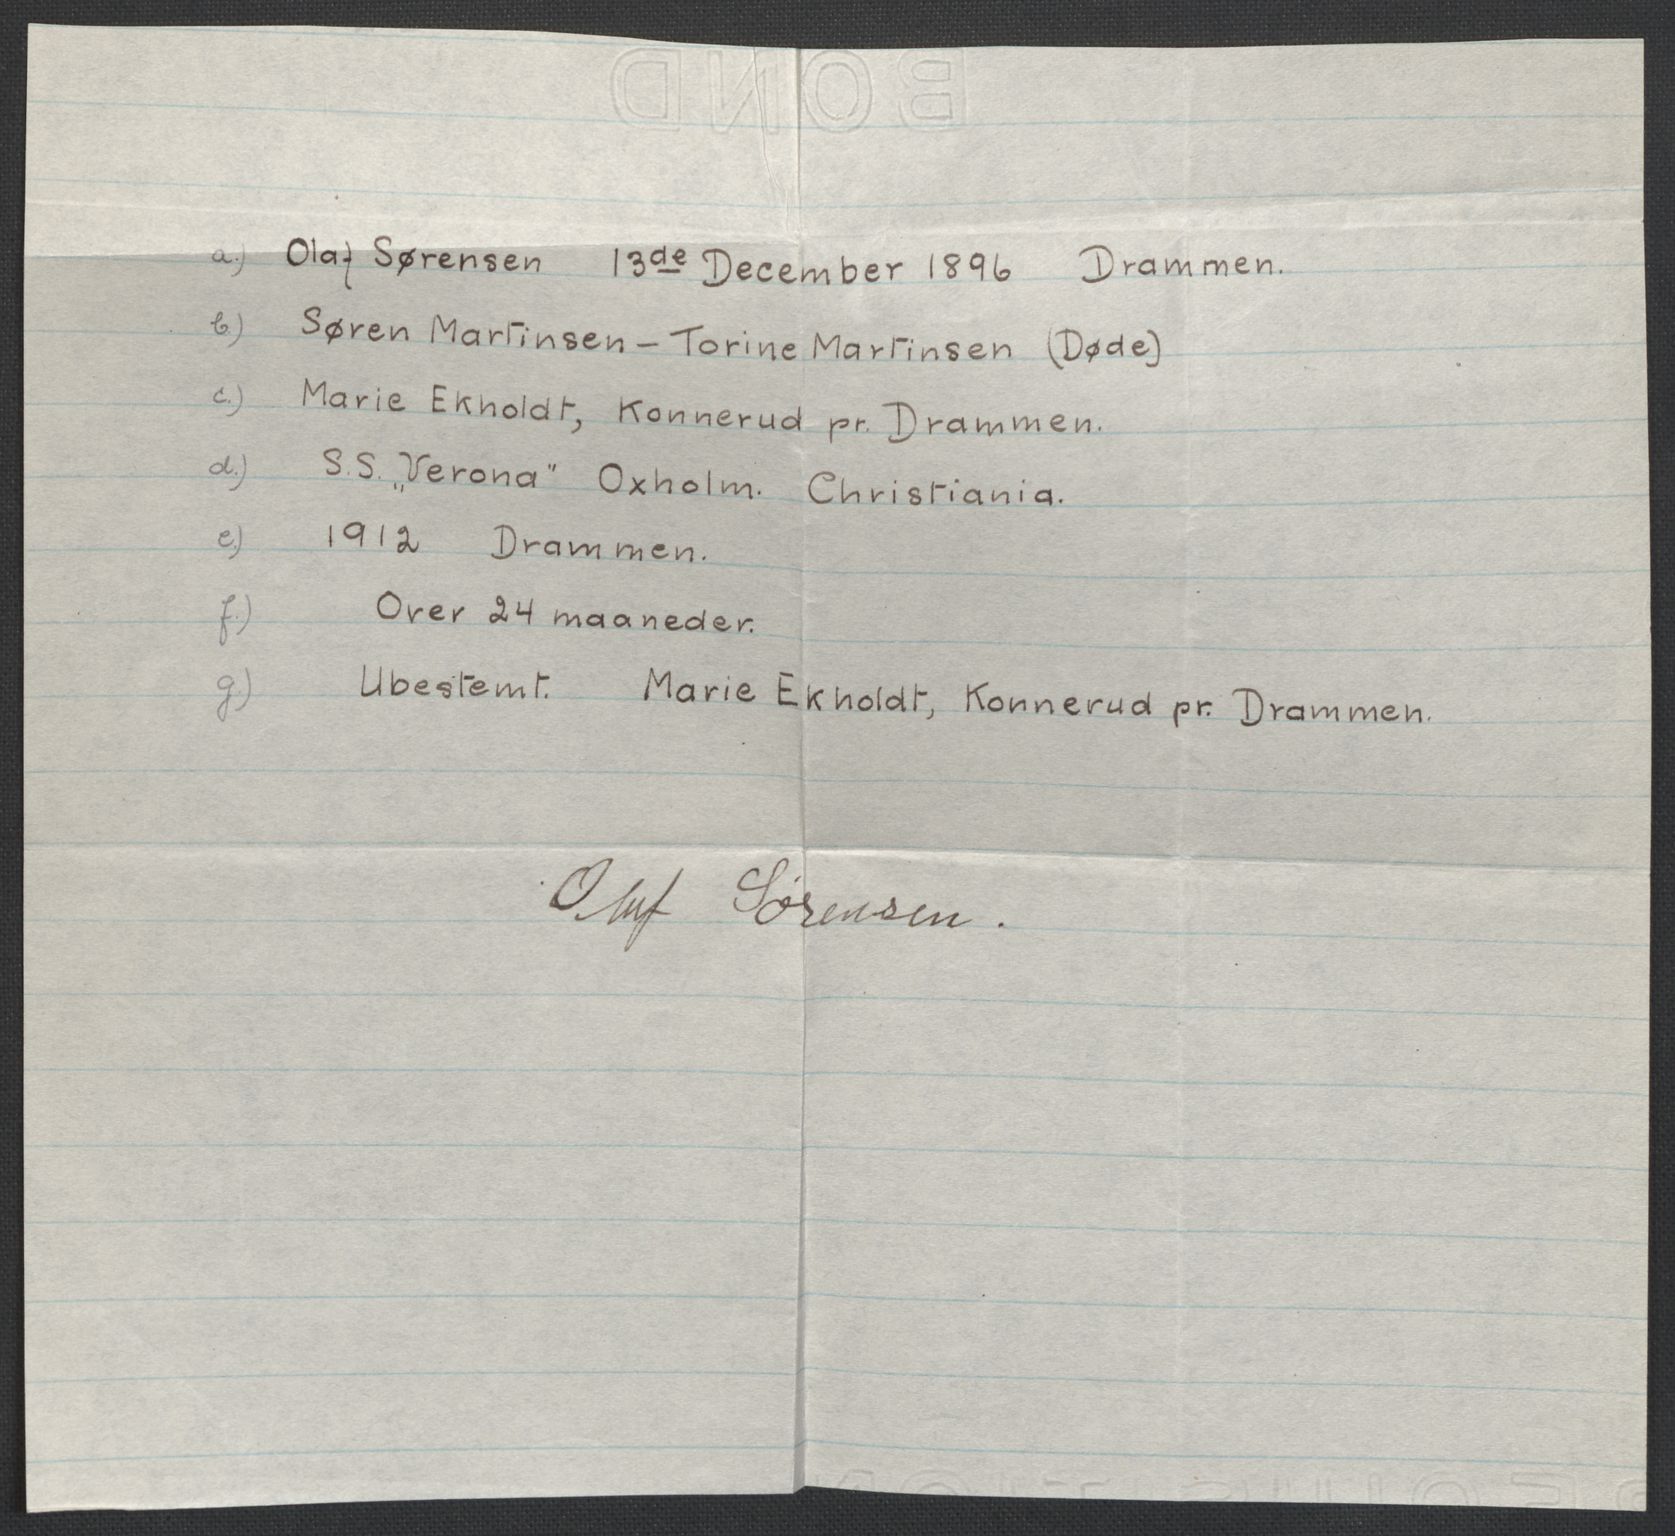 BOND
a.) Olaf Sørensen 13de December 1896 Drammen.
b.) Søren Martinsen – Torine Martinsen (Døde)
c.) Marie Ekholdt, Konnerud pr. Drammen.
d.) S.S. „Verona" Oxholm. Christiania.
e.) 1912 Drammen.
f.) Over 24 maaneder.
g.) Ubestemt. Marie Ekholdt, Konnerud pr. Drammen.
Olaf Sørensen.